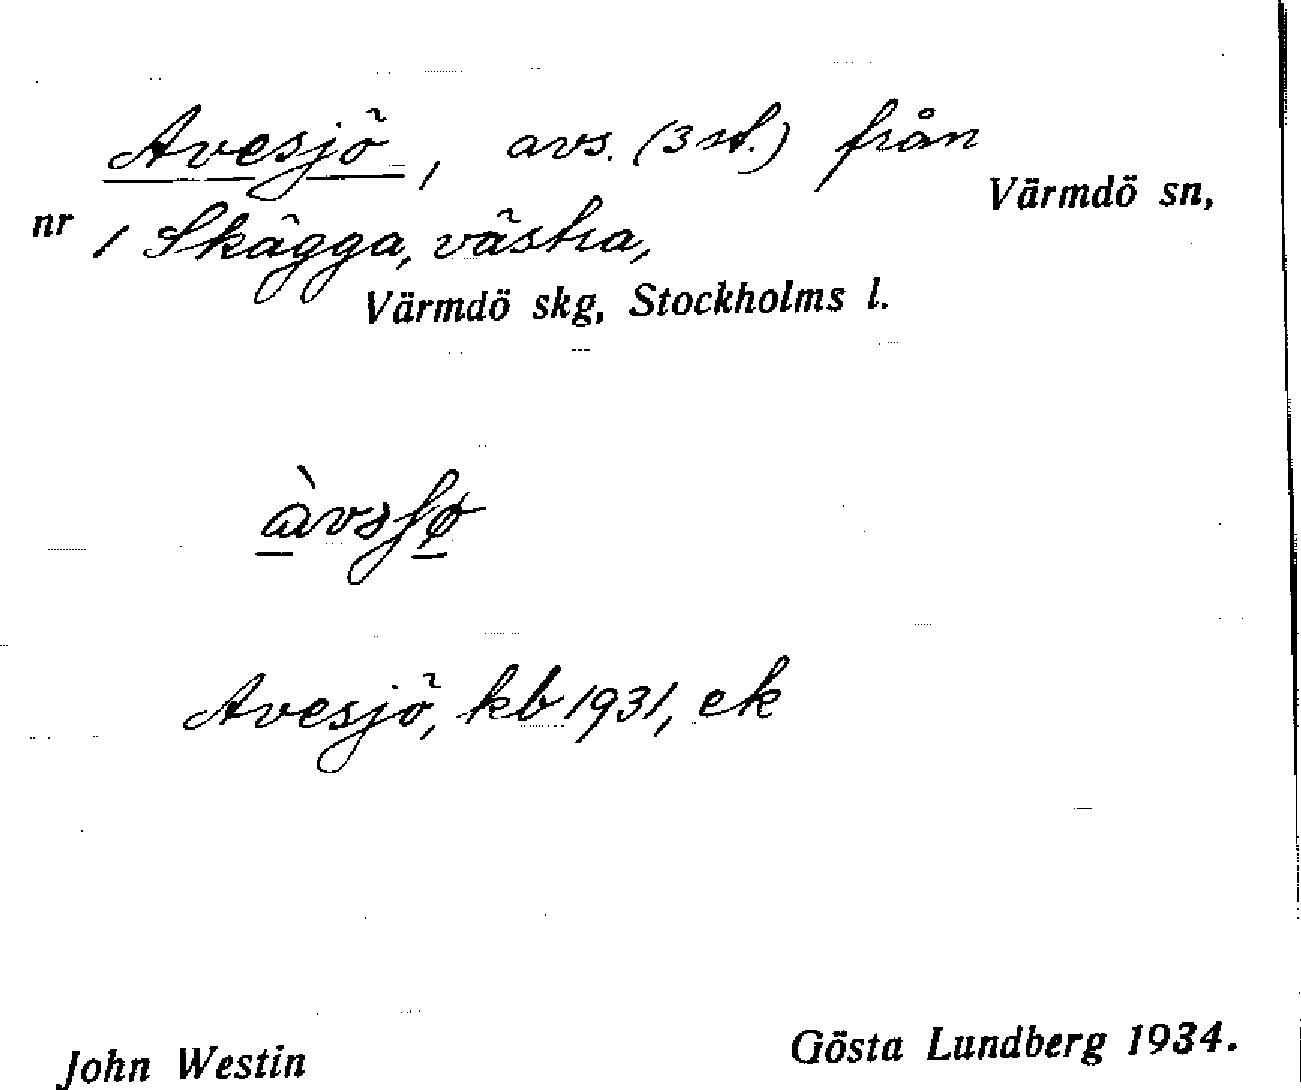 Avesjö, avs. (3 st.) från
Värmdö sn,
nr 1 Skägga, västra,
Värmdö skg, Stockholms l.
àvsʃø
Avesjö, kb 1931, ek
John Westin
Gösta Lundberg 1934.